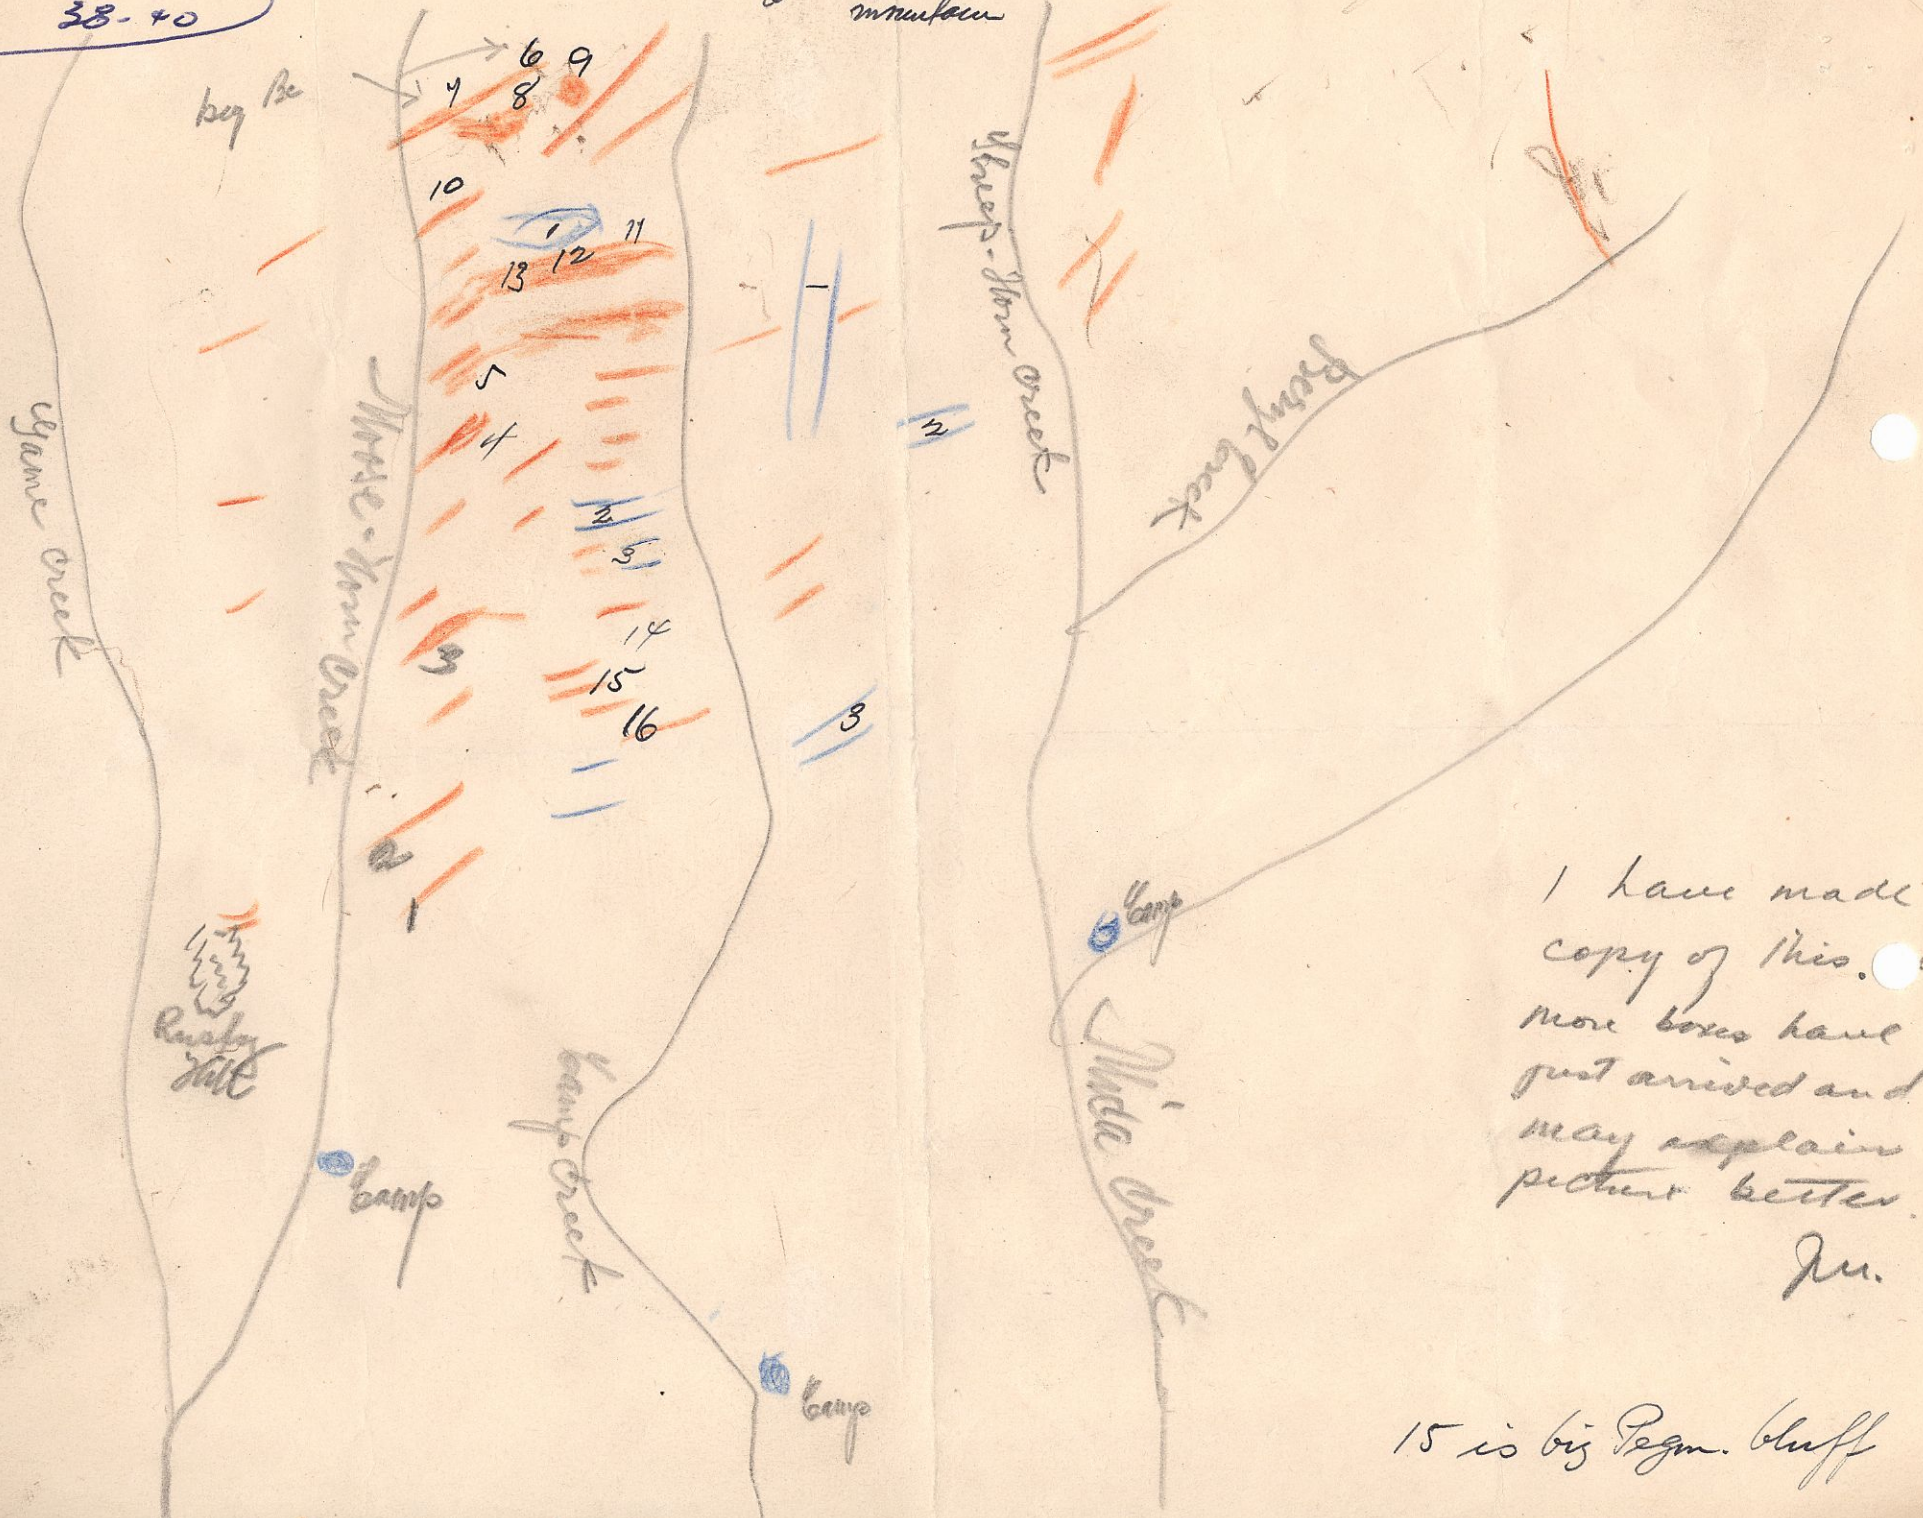 38-40
mountain
big Be
6 9
7 8
10
1 11
13 12
1
5
4
2
2
3
14
3
15
16
3
2
1
Game Creek
Moose-Horn Creek
Sheep-Horn Creek
Beryl Creek
Camp
Rusty
Hill
Camp
Camp Creek
Nida Creek
Camp
I have made
copy of this.
more boxes have
just arrived and
may explain
picture better.
15 is big Pegm. bluff